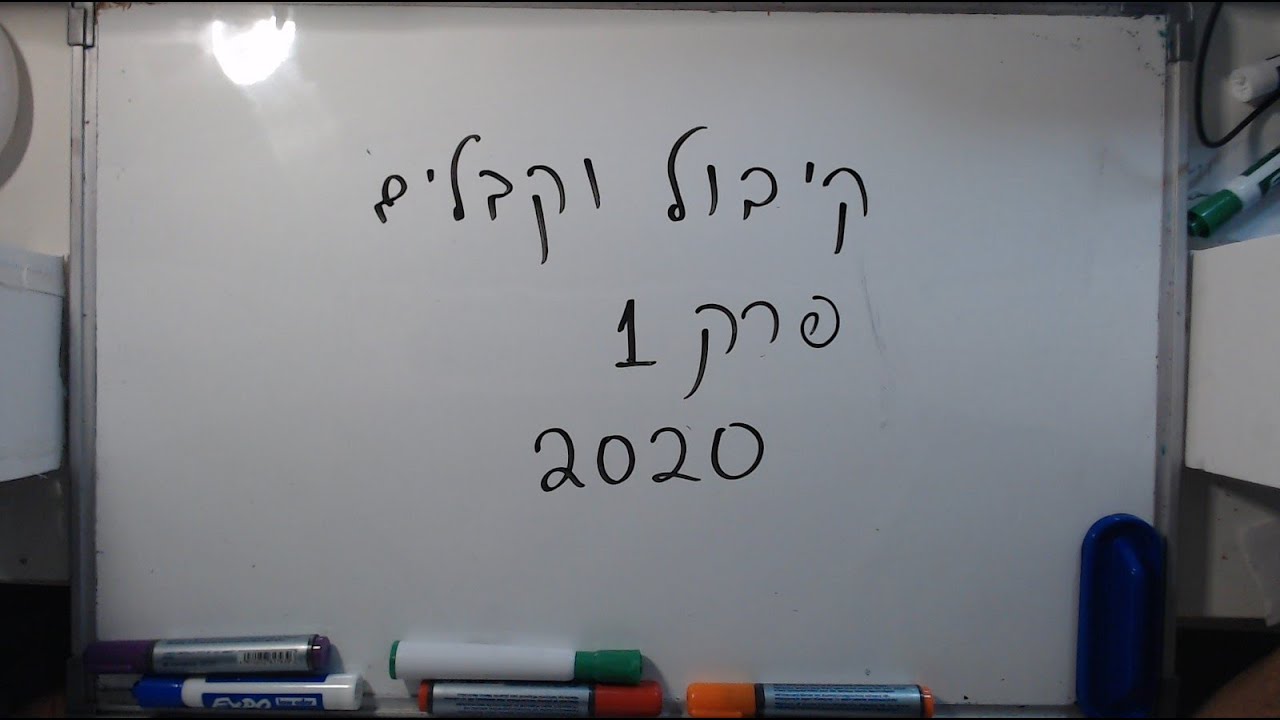 קיבול וקבלים
פרק 1
2020
EXPO